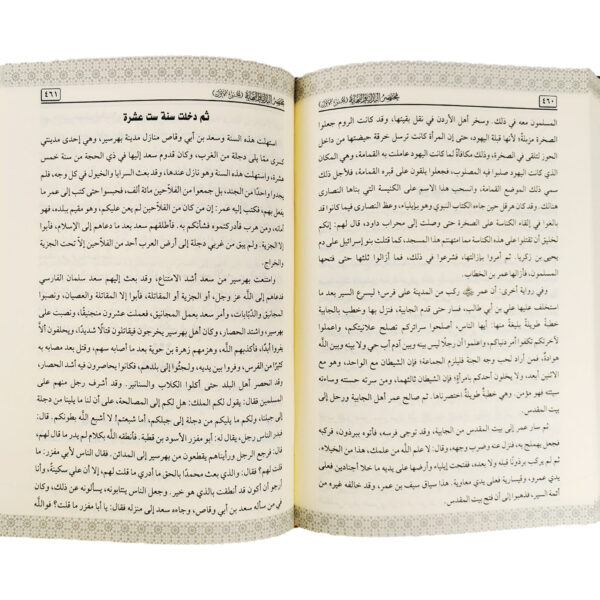 ٤٦٠
المسلمون معه في ذلك. وسخر أهل الأردن في نقل بقيتها، وقد كانت الروم جعلوا
الصخرة مزبلةً؛ لأنها قبلة اليهود، حتى إن المرأة كانت ترسل خرقة حيضتها من داخل
الحوز لتلقى في الصخرة، وذلك مكافأةً لما كانت اليهود عاملت به القمامة، وهي المكان
الذي كانت اليهود صلبوا فيه المصلوب، فجعلوا يلقون على قبره القمامة، فلأجل ذلك
سمي ذلك الموضع القمامة، وانسحب هذا الاسم على الكنيسة التي بناها النصارى
هنالك. وقد كان هرقل حين جاءه الكتاب النبوي وهو بإيلياء، وعظ النصارى فيما كانوا قد
بالغوا في إلقاء الكناسة على الصخرة حتى وصلت إلى محراب داود، قال لهم: إنكم
لخليق أن تقتلوا على هذه الكناسة مما امتهنتم هذا المسجد، كما قتلت بنو إسرائيل على دم
يحيى بن زكريا. ثم أمروا بإزالتها، فشرعوا في ذلك، فما أزالوا ثلثها حتى فتحها
المسلمون، فأزالها عمر بن الخطاب.
وفي رواية أخرى: أن عمر ركب من المدينة على فرس؛ ليسرع السير بعد ما
استخلف عليها علي بن أبي طالب، فسار حتى قدم الجابية، فنزل بها وخطب بالجابية
خطبةً طويلةً بليغةً منها: أيها الناس، أصلحوا سرائركم تصلح علانيتكم، واعملوا
لآخرتكم تكفوا أمر دنياكم، واعلموا أن رجلًا ليس بينه وبين آدم أب حي ولا بينه وبين الله
هوادة، فمن أراد لحب وجه الجنة فليلزم الجماعة؛ فإن الشيطان مع الواحد، وهو مع
الاثنين أبعد، ولا يخلون أحدكم بامرأةٍ؛ فإن الشيطان ثالثهما، ومن سرته حسنته وساءته
سيئته فهو مؤمن. وهي خطبةٌ طويلةٌ اختصرناها. ثم صالح عمر أهل الجابية ورحل إلى
بيت المقدس.
ثم سار عمر إلى بيت المقدس من الجابية، وقد توجى فرسه، فأتوه ببرذون، فركبه
فجعل يهملج به، فنزل عنه وضرب وجهه، وقال: لا علم الله من علمك، هذا من الخيلاء.
ثم لم يركب برذونًا قبله ولا بعده، ففتحت إيلياء وأرضها على يديه ما خلا أجنادين فعلى
يدي عمرو، وقيسارية فعلى يدي معاوية. هذا سياق سيف بن عمر، وقد خالفه غيره من
أئمة السير، فذهبوا إلى أن فتح بيت المقدس.
٤٦١
ثم دخلت سنة ست عشرة
استهلت هذه السنة وسعد بن أبي وقاص منازل مدينة بهرسير، وهي إحدى مدينتي
كسرى ممّا يلي دجلة من الغرب، وكان قدوم سعد إليها في ذي الحجة من سنة خمس
عشرة، واستهلت هذه السنة وهو نازل عندها، وقد بعث السرايا والخيول في كل وجه، فلم
يجدوا واحدًا من الجند، بل جمعوا من الفلاحين مائة ألف، فحبسوا حتى كتب إلى عمر ما
يفعل بهم، فكتب إليه عمر: إن من كان من الفلاحين لم يعن عليكم، وهو مقيم ببلده، فهو
أمانه، ومن هرب فأدركتموه فشأنكم به. فأطلقهم سعد بعد ما دعاهم إلى الإسلام، فأبوا
إلا الجزية، ولم يبق من غربي دجلة إلى أرض العرب أحد من الفلاحين إلا تحت الجزية
والخراج.
وامتنعت بهرسير من سعد أشد الامتناع، وقد بعث إليهم سعد سلمان الفارسي
فدعاهم إلى الله عز وجل، أو الجزية أو المقاتلة، فأبوا إلا المقاتلة والعصيان، ونصبوا
المجانيق والدبابات، وأمر سعد بعمل المجانيق، فعملت عشرون منجنيقًا، ونصبت على
بهرسير، واشتد الحصار، وكان أهل بهرسير يخرجون فيقاتلون قتالًا شديدًا، ويحلفون ألّا
يفروا أبدًا، فأكذبهم الله، وهزمهم زهرة بن حوية بعد ما أصابه سهم، وقتل بعد مصابه به
كثيرًا من الفرس، وفروا بين يديه، ولجئوا إلى بلدهم، فكانوا يحاصرون فيه أشد الحصار،
وقد انحصر أهل البلد حتى أكلوا الكلاب والسنانير. وقد أشرف رجل منهم على
المسلمين فقال: يقول لكم الملك: هل لكم إلى المصالحة، على أن لنا ما يلينا من دجلة
إلى جبلنا، ولكم ما يليكم من دجلة إلى جبلكم، أما شبعتم؟ لا أشبع الله بطونكم. قال:
فبدر الناس رجل، يقال له: أبو مفزر الأسود بن قطبة. فأنطقه الله بكلام لم يدر ما قال لهم،
قال: فرجع الرجل ورأيناهم يقطعون من بهرسير إلى المدائن. فقال الناس لأبي مفزر: ما
قلت لهم؟ فقال: والذي بعث محمدًا بالحق ما أدري ما قلت لهم، إلا أن علي سكينةً، وأنا
أرجو أن أكون قد أنطقت بالذي هو خير. وجعل الناس ينتابونه، يسألونه عن ذلك، وكان
في من سأله سعد بن أبي وقاص، وجاءه سعد إلى منزله فقال: يا أبا مفزر ما قلت؟ فوالله